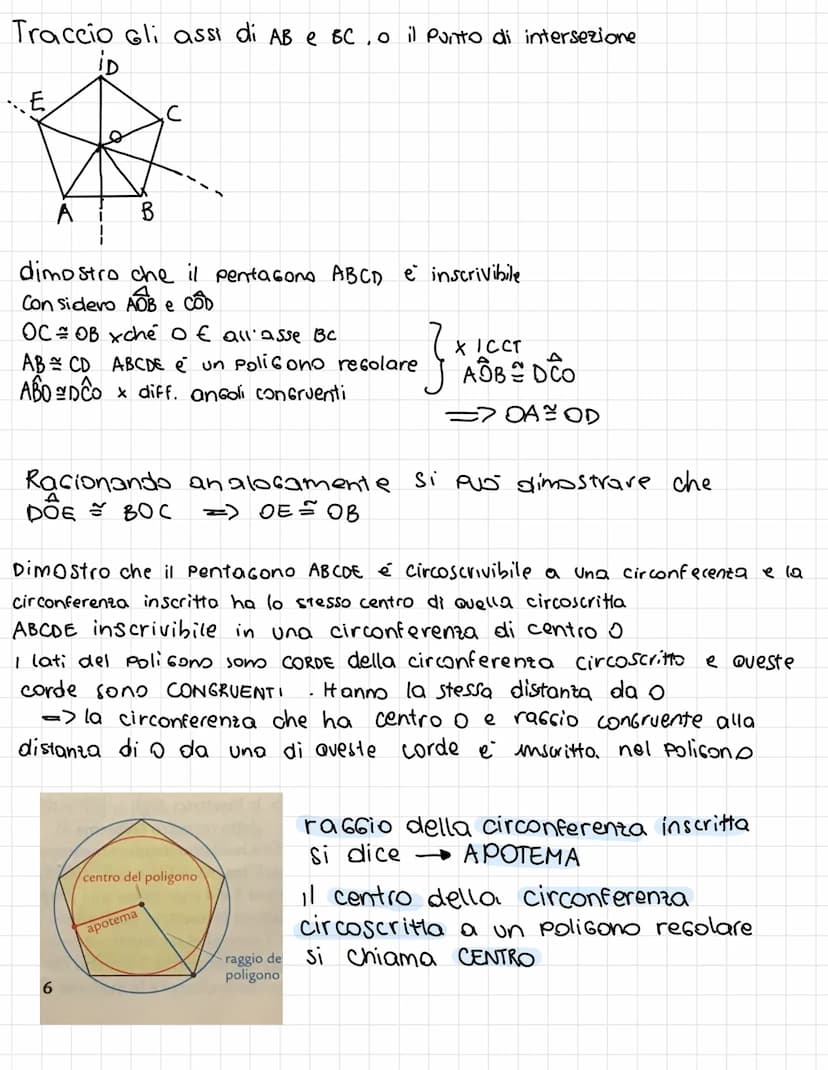 Traccio Gli assi di AB e BC, O il Punto di intersezione
D
E
C
O
A
B
dimostro che il pentagono ABCD è inscrivibile
Considero AÔB e CÔD
OC ≅ OB xché O € all'asse BC
AB ≅ CD ABCDE è un poligono regolare
AB̂O ≅ DĈO x diff. angoli congruenti
x 1CCT
AÔB ≅ DĈO
=> OA ≅ OD
Ragionando analogamente si può dimostrare che
DÔE ≅ BOC => OE ≅ OB
Dimostro che il Pentagono ABCDE è circoscrivibile a una circonferenza e la
circonferenza inscritto ha lo stesso centro di quella circoscritta
ABCDE inscrivibile in una circonferenza di centro O
I lati del Poligono sono CORDE della circonferenza circoscritto e queste
corde sono CONGRUENTI . Hanno la stessa distanza da O
=> la circonferenza che ha centro O e raggio congruente alla
distanza di O da una di queste corde è inscritta nel Poligono
centro del poligono
apotema
raggio de
poligono
6
raggio della circonferenza inscritta
si dice → APOTEMA
il centro della circonferenza
circoscritta a un poligono regolare
si chiama CENTRO